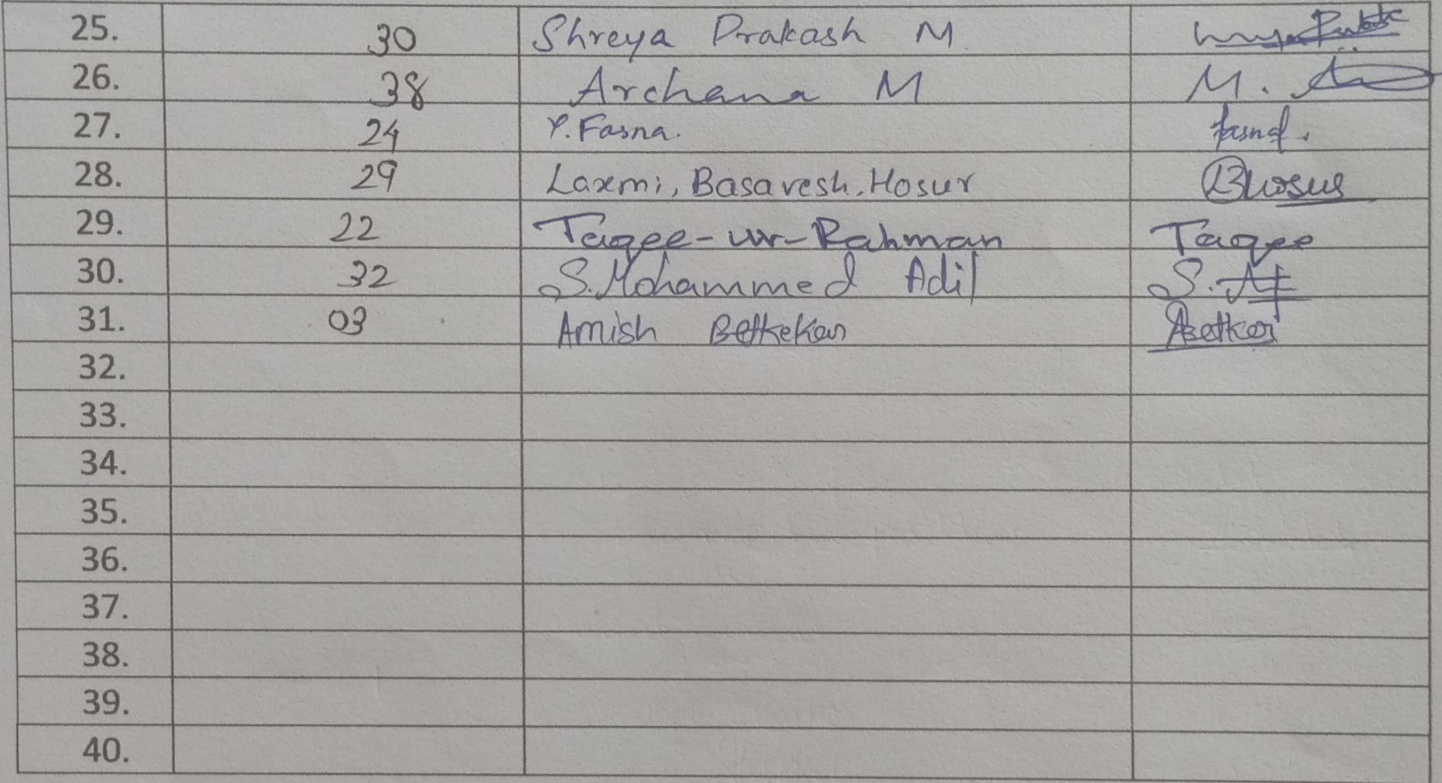 25. 30 Shreya Prakash M
26. 38 Archana M M.
27. 24 P. Fasna.
28. 29 Laxmi, Basavesh. Hosur
29. 22 Taqee-ur-Rahman Taqee
30. 32 S. Mohammed Adil S.
31. 03 Amish Betkekar
32.
33.
34.
35.
36.
37.
38.
39.
40.